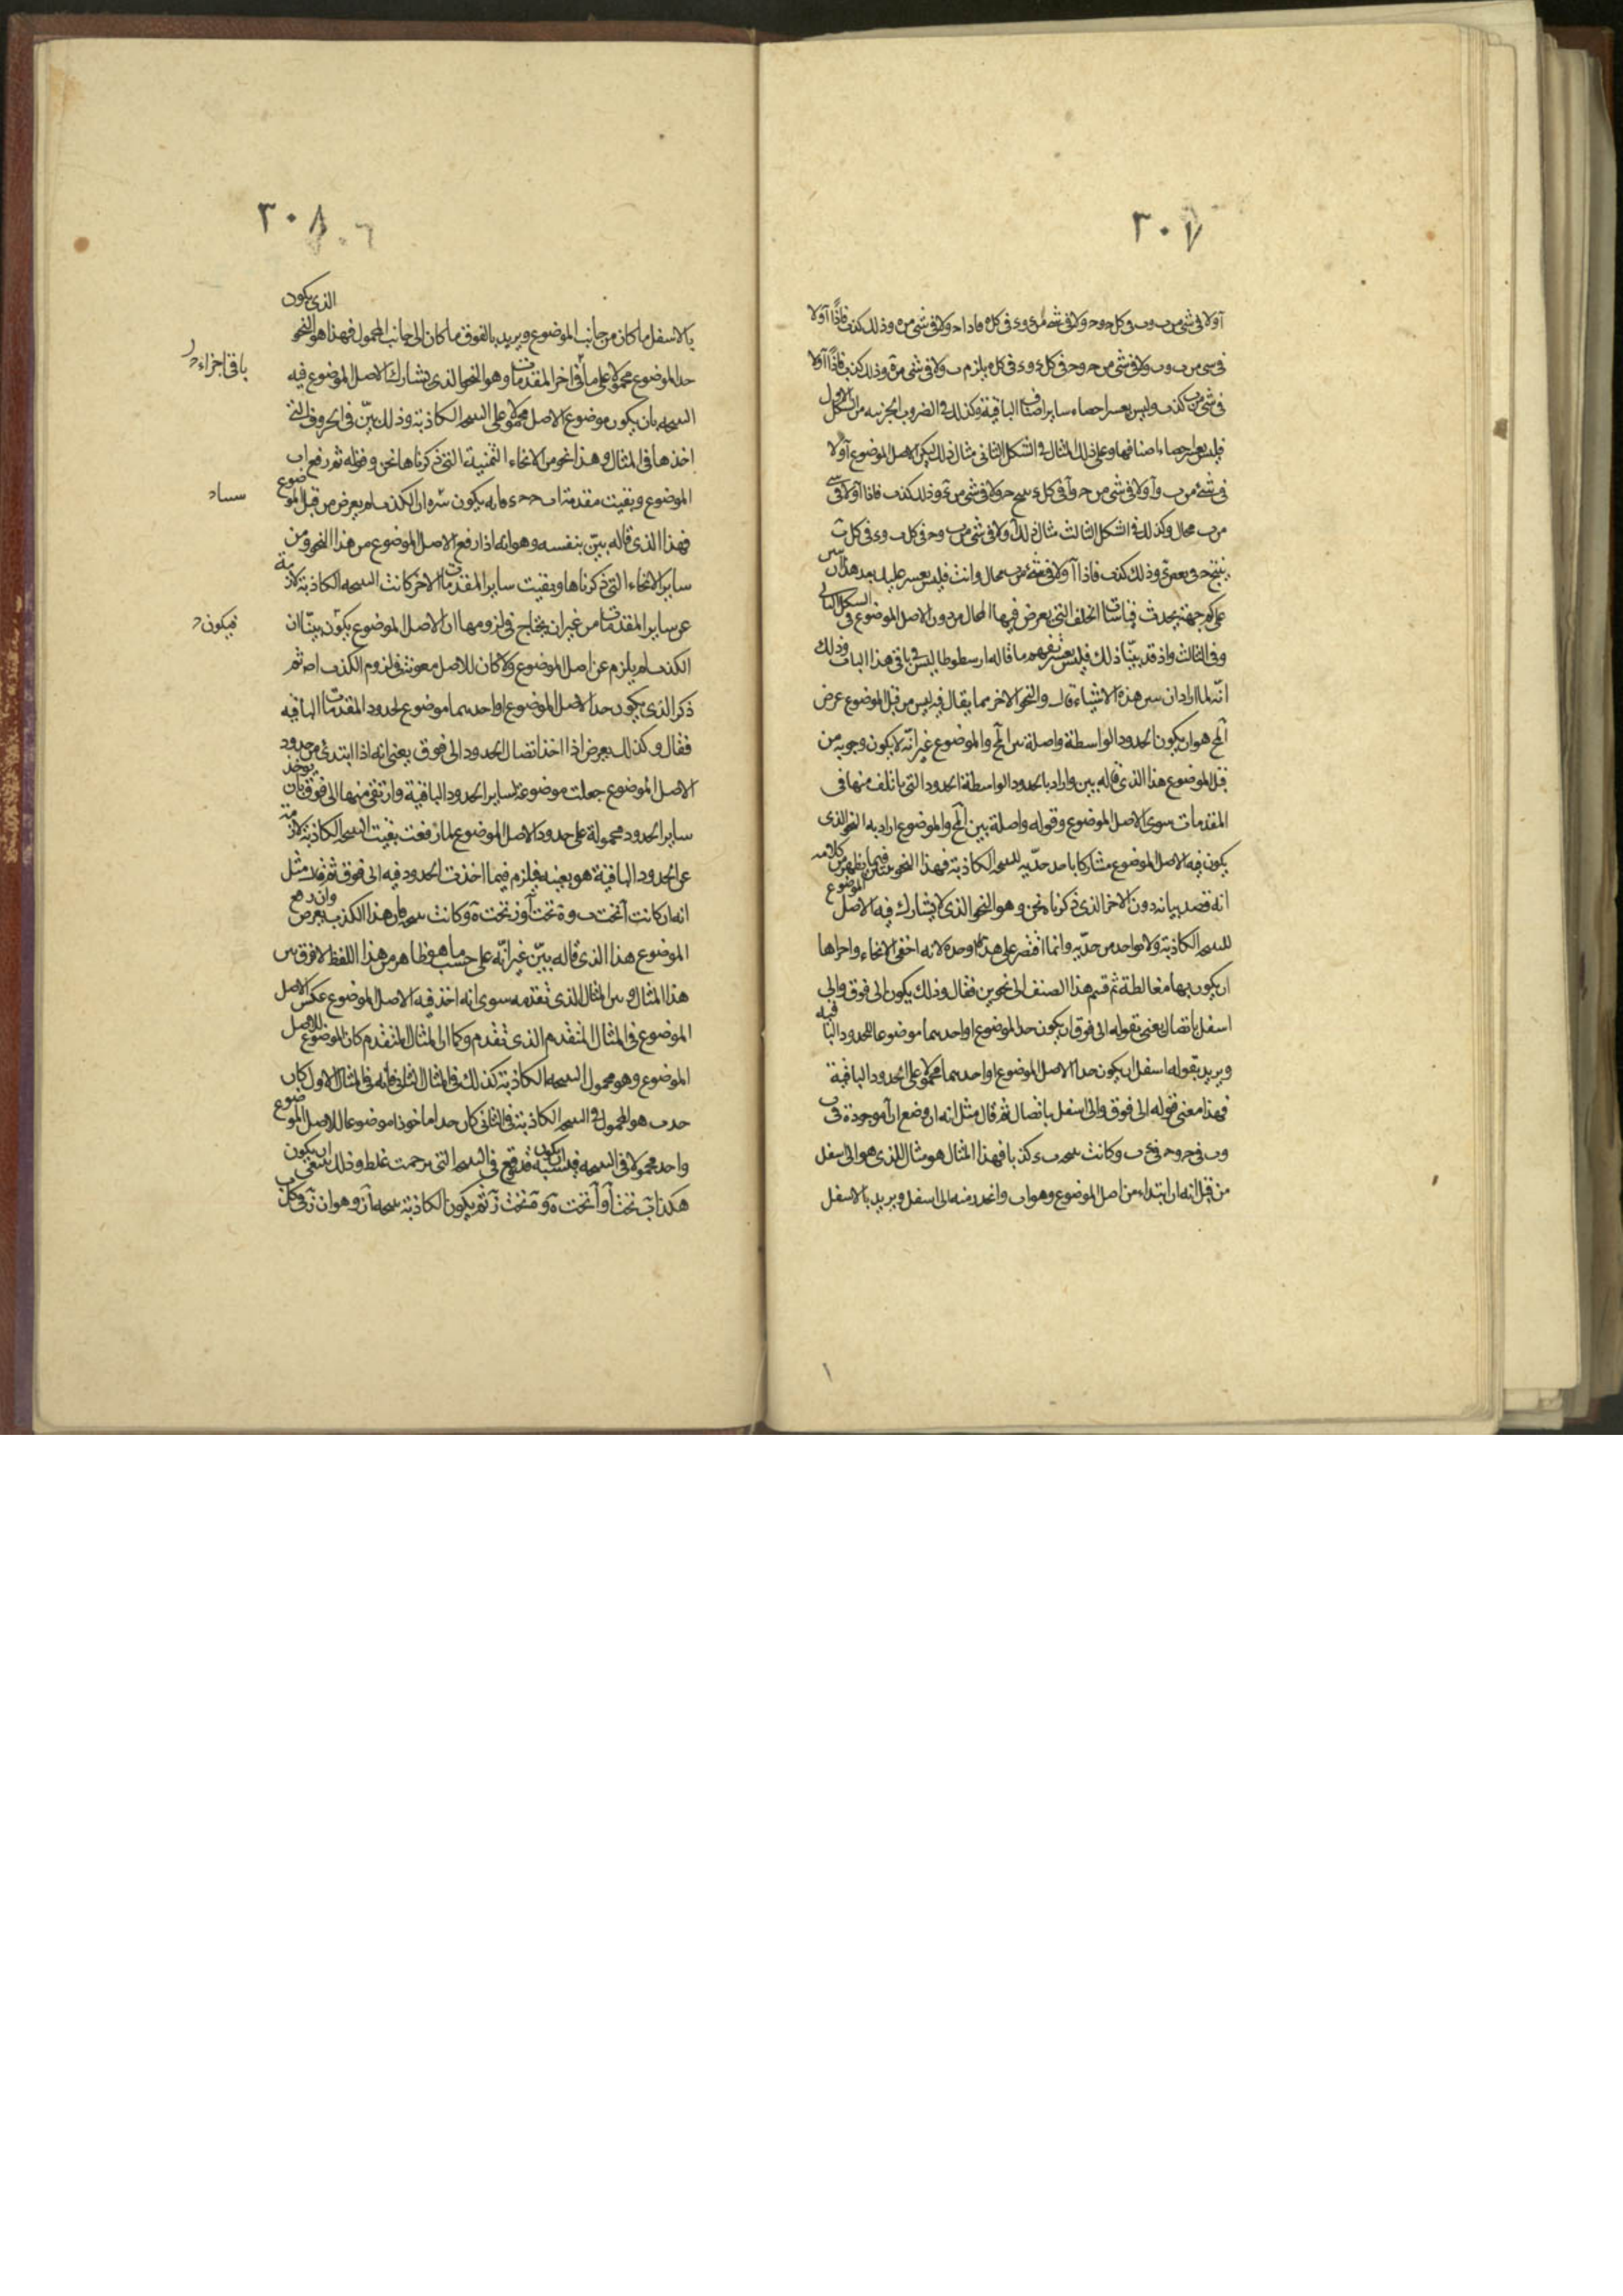 ٣٠٧
آ ولا فى شى من ب وب فى كل ح وح ولا فى شى من ء وء فى كل ه فاذا ح ولا فى شى من ه وذلك كذب فاذًا آ ولا
فى شى من ب وب ولا فى شى من ح وح فى كل ء وء فى كل ه يلزم ب ولا فى شى من ه وذلك كذب فاذًا آ ولا
فى شى من ب كذب وليس يعسر احصاء ساير اصناف الباقية وكذلك فى الضروب الجزئيه من الشكل الاول
فليس يعسر احصاء اصنافها وعلى ذلك المثال فى الشكل الثانى مثال ذلك ليكن الاصل الموضوع آ ولا
فى شئ من ب وآ ولا فى شى من ح وآ فى كل ء ينتج ح ولا فى شى من ء وذلك كذب فاذا آ ولا فى شى
من ب محال وكذلك فى الشكل الثالث مثال ذلك آ ولا فى شى من ب وح فى كل ب وء فى كل ب
ينتج ح فى بعض ء وذلك كذب فاذا آ ولا فى شئ من ب محال وانت فليس يعسر عليك بعد هذا ان تبين
على كم جهة يحدث قياسات الخلف التى يعرض فيها المحال من دون الاصل الموضوع فى الشكل الثانى
وفى الثالث واذ قد بيّنا ذلك فليس يعسر تفهم ما قاله ارسطوطاليس فى باقى هذا الباب وذلك
انّه لما اراد ان يبين هذه الاشياء قال والنحو الاخر مما يقال فيه ليس من قبل الموضوع عرض
آلمح هو ان يكون الحدود الواسطة واصلة بين آلمح والموضوع غير انّه لا يكون وجوبه من
قبل الموضوع هذا الذى قاله بين واراد بالحدود الواسطة الحدود التى ياتلف منها فى
المقدمات سوى الاصل الموضوع وقوله واصلة بين آلمح والموضوع اراد به النحو الذى
يكون فيه الاصل الموضوع مشاركا باحد حدّيه للنتيجه الكاذبة فهذا النحو فيما يظهر من كلامه
انه قصد بيانه دون الاخر الذى ذكرناه نحن وهو النحو الذى لا يشارك فيه الاصل الموضوع
للنتيجه الكاذبة ولا بواحد من حدّيه وانما اقتصر على هذا وحده لانه اخفى الانحاء واحراها
ان يكون بها مغالطة ثم قسم هذا الصنف الى نحوين فقال وذلك يكون الى فوق والى
اسفل باتصال يعنى بقوله الى فوق ان يكون حد الموضوع او احدهما موضوعا للحدود الباقيه
ويريد بقوله اسفل ان يكون حدا الاصل الموضوع او احدهما محمولا على الحدود الباقية
فهذا معنى قوله الى فوق والى اسفل باتصال ثم قال مثل انه ان وضع ان آ موجودة فى ب
وب فى ح وح فى ء وكانت نتيجه ب ء كذبا فهذا المثال هو مثال الذى هو الى اسفل
من قبل انه ان ابتداء من اصل الموضوع وهو اب وانحدر منه الى اسفل ويريد بالاسفل
٣٠٨
بالاسفل ما كان من جانب الموضوع ويريد بالفوق ما كان الى جانب المحمول فهذا هو النحو الذى يكون
حد الموضوع محمولا على ما فى اخر المقدمات وهو النحو الذى يشارك الاصل الموضوع فيه
باقى اجزاء
النتيجه بان يكون موضوع الاصل محمولا على النتيجه الكاذبة وذلك بيّن فى الحروف التى
اخذها فى المثال وهذا نحو من الانحاء الثمنية التى ذكرناها نحن وقوله ثم رفع اب
الموضوع وبقيت مقدمة ب ح ح ء فانه يكون ان الكذب لم يعرض من قبل الموضوع
فهذا الذى قاله بيّن بنفسه وهو انه اذا رفع الاصل الموضوع من هذا النحو ومن
ساير الانحاء التى ذكرناها وبقيت ساير المقدمات الاخر كانت النتيجه الكاذبة لازمة
عن ساير المقدمات من غير ان يحتاج فى لزومها ان الاصل الموضوع يكون بيّنا ان
فيكون
الكذب لم يلزم عن اصل الموضوع ولا كان للاصل معونة فى لزوم الكذب اص ثم
ذكر الذى يكون حد الاصل الموضوع او احدهما موضوع لحدود المقدمات الباقيه
فقال وكذلك يعرض اذا اخذ اتصال الحدود الى فوق يعنى انه اذا ابتدئ من حدود
الاصل الموضوع جعلت موضوعة لساير الحدود الباقية وارتقى منها الى فوق بان يوخذ
ساير الحدود محمولة على حدود الاصل الموضوع لما رفعت بقيت النتيجه الكاذبة لازمة
عن الحدود الباقية هو بعينه فيلزم فيما اخذت الحدود فيه الى فوق ثم قال مثل
انه ان كانت آ تحت ب وه تحت آ وز تحت ه وكانت نتيجه فان هذا الكذب يعرض وان رفع
الموضوع هذا الذى قاله بيّن غير انّه على حسب ما هو ظاهر من هذا اللفظ لا فرق بين
هذا المثال وبين المثال الذى تقدمه سوى انه اخذ فيه الاصل الموضوع عكس الاصل
الموضوع فى المثال المتقدم الذى تقدم وكما ان المثال المتقدم كان الموضوع للاصل
الموضوع وهو محمول النتيجه الكاذبة كذلك فى المثال الثانى فانه فى المثال الاول كان
حد ب هو المحمول فى النتيجه الكاذبة وفى الثانى كان حد اما خوذا موضوعا للاصل الموضوع
واحد محمولا فى النتيجه فيشبه ان يكون قد وقع فى النسخه التى ترجمت غلط وذلك ينبغى ان يكون
هكذا ب تحت آ وآ تحت ه وه تحت ز ثم يكون الكاذبة نتيجه آ ز وهو ان ز فى كل